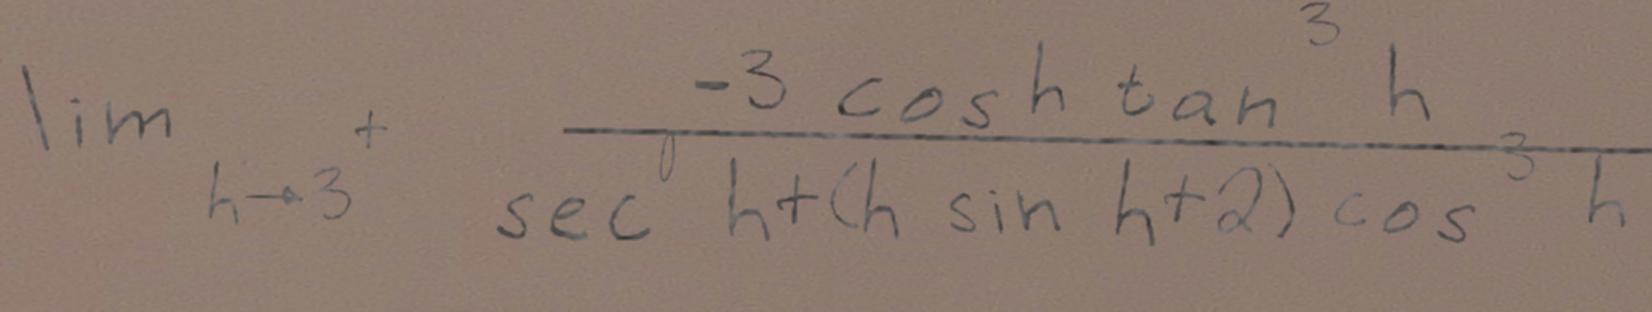 lim_{h→3^+} \frac{-3 cos h tan^3 h}{sec^0 h+(h sin h+2) cos^3 h}